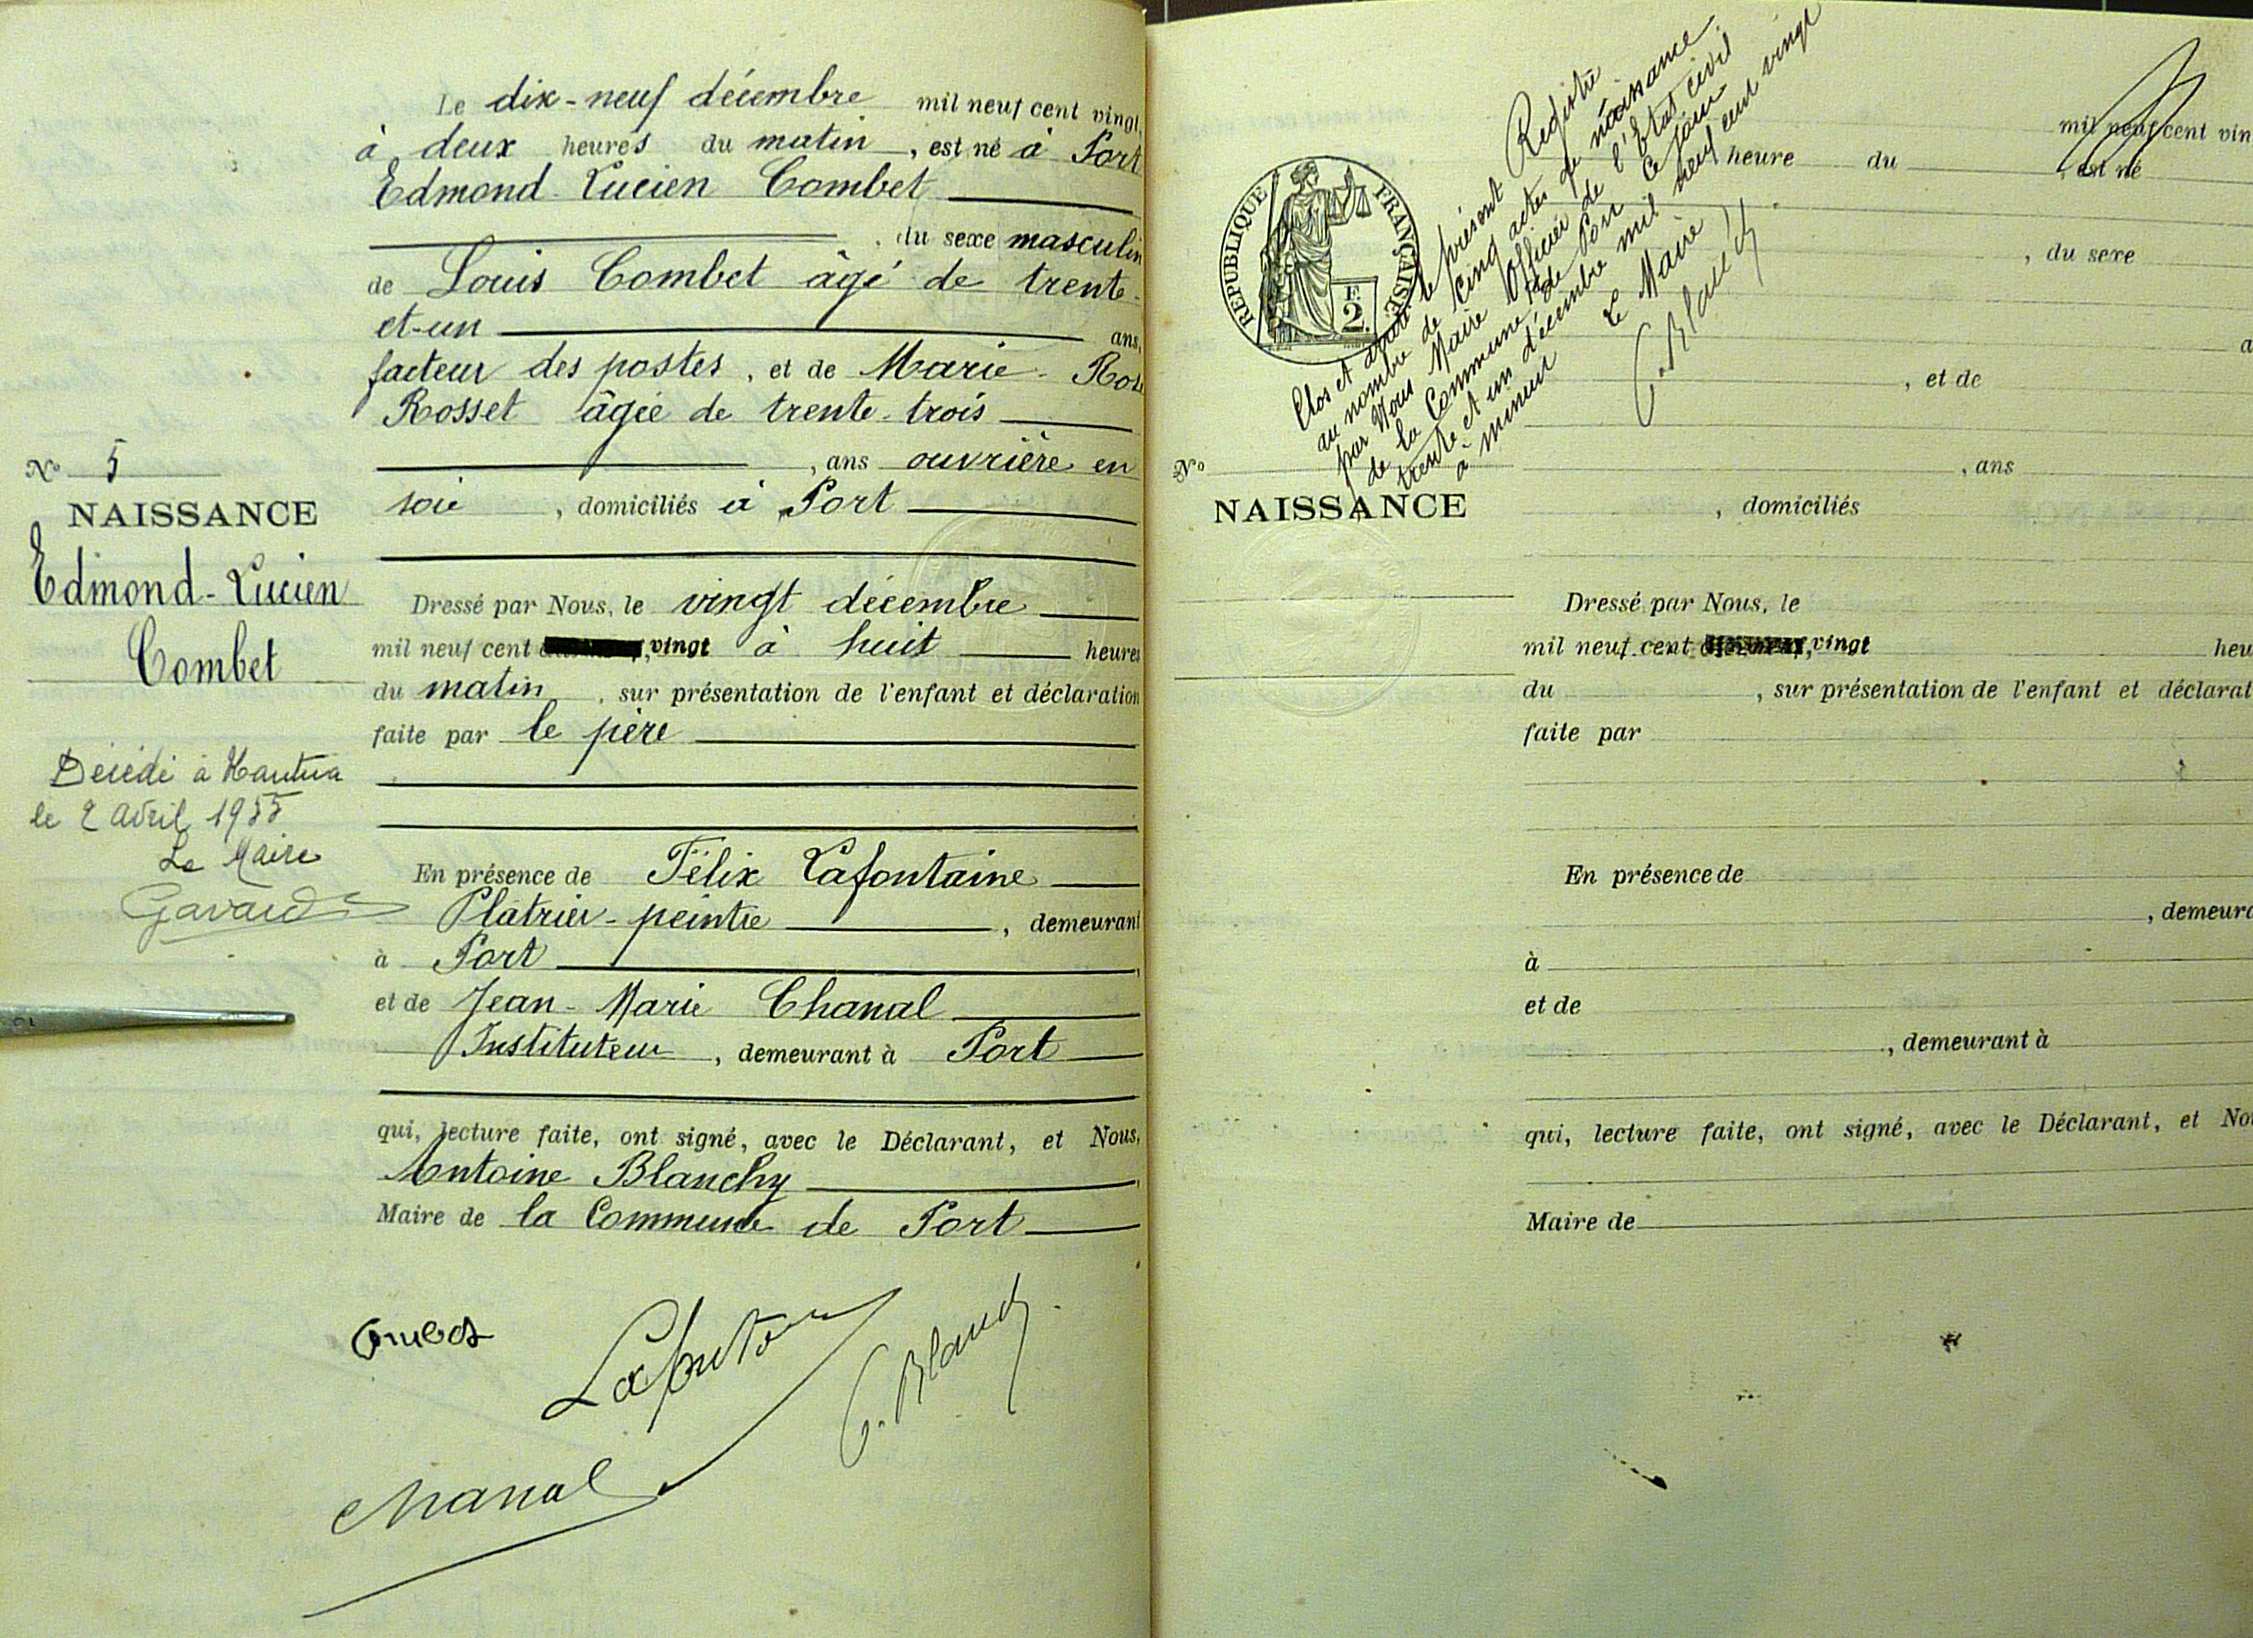 Le dix-neuf décembre mil neuf cent vingt,
à deux heures du matin, est né à Port
Edmond-Lucien Combet
, du sexe masculin
de Louis Combet âgé de trente-
et-un ans,
facteur des postes, et de Marie-Rose
Rosset âgée de trente-trois
, ans ouvrière en
soie, domiciliés à Port
Dressé par Nous, le vingt décembre
mil neuf cent vingt à huit heures
du matin, sur présentation de l'enfant et déclaration
faite par le père
En présence de Félix Lafontaine
Platrier-peintre, demeurant
à Port,
et de Jean-Marie Chanal
Instituteur, demeurant à Port
qui, lecture faite, ont signé, avec le Déclarant, et Nous,
Antoine Blanchy,
Maire de la Commune de Port
Combet
Lafontaine
A. Blanchy
Chanal
No 5
NAISSANCE
Edmond-Lucien
Combet
Décédé à Nantua
le 2 avril 1955
Le Maire
Gavard
RÉPUBLIQUE FRANÇAISE
F.
2.
Clos et arrêté le présent Registre
au nombre de cinq actes de naissance
par Nous Maire Officier de l'Etat civil
de la Commune de Port ce jour
trente et un décembre mil neuf cent vingt
à minuit
Le Maire
A. Blanchy
mil neuf cent vin
heure du, est né
, du sexe
a
, et de
No
, ans
NAISSANCE
, domiciliés
Dressé par Nous, le
mil neuf cent vingt heu
du, sur présentation de l'enfant et déclarat
faite par
En présence de
, demeura
à
et de
, demeurant à
qui, lecture faite, ont signé, avec le Déclarant, et Nou
Maire de